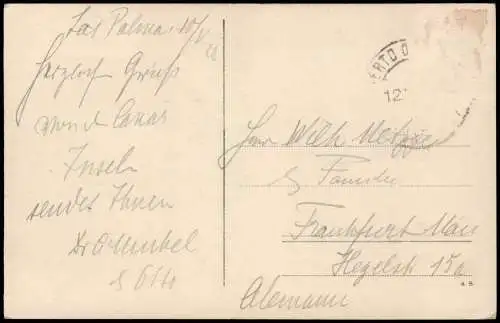 Las Palmas 10/V 28
Herzlich Gruss
von d. Canar
Inseln
sendet Ihnen
& Otto
PUERTO
12
Herr Wilh Metzger
& Familie
Frankfurt Main
Hegelstr 15a
Alemania
A. B.